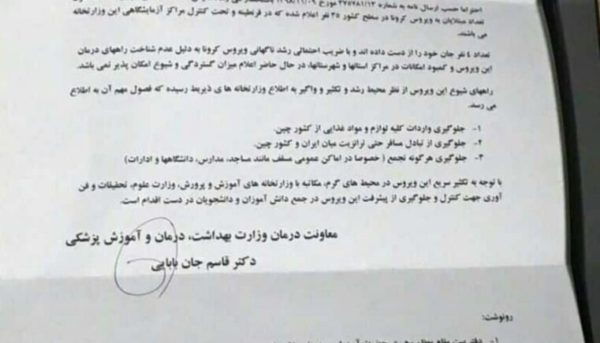 احتراما حسب ارسال نامه به شماره ۳۷۵۷۸۱/۱۲ مورخ
تعداد مبتلایان به ویروس کرونا در سطح کشور ۳۵ نفر اعلام شده که در قرنطینه و تحت کنترل مراکز آزمایشگاهی این وزارتخانه
می باشند.
تعداد ٤ نفر جان خود را از دست داده اند و با ضریب احتمالی رشد ناگهانی ویروس کرونا به دلیل عدم شناخت راههای درمان
این ویروس و کمبود امکانات در مراکز استانها و شهرستانها، در حال حاضر اعلام میزان گستردگی و شیوع امکان پذیر نمی باشد.
راههای شیوع این ویروس از نظر محیط رشد و تکثیر و واگیر به اطلاع وزارتخانه های ذیربط رسیده که فصول مهم آن به اطلاع می
رسد.
۱- جلوگیری واردات کلیه لوازم و مواد غذایی از کشور چین.
۲- جلوگیری از تبادل مسافر حتی ترانزیت میان ایران و کشور چین.
۳- جلوگیری هرگونه تجمع (خصوصا در اماکن عمومی مسقف مانند مساجد، مدارس، دانشگاهها و ادارات)
با توجه به تکثیر سریع این ویروس در محیط های گرم، مکاتبه با وزارتخانه های آموزش و پرورش، وزارت علوم، تحقیقات و فن
آوری جهت کنترل و جلوگیری از پیشرفت این ویروس در جمع دانش آموزان و دانشجویان در دست اقدام است.
معاونت درمان وزارت بهداشت، درمان و آموزش پزشکی
دکتر قاسم جان بابایی
رونوشت: